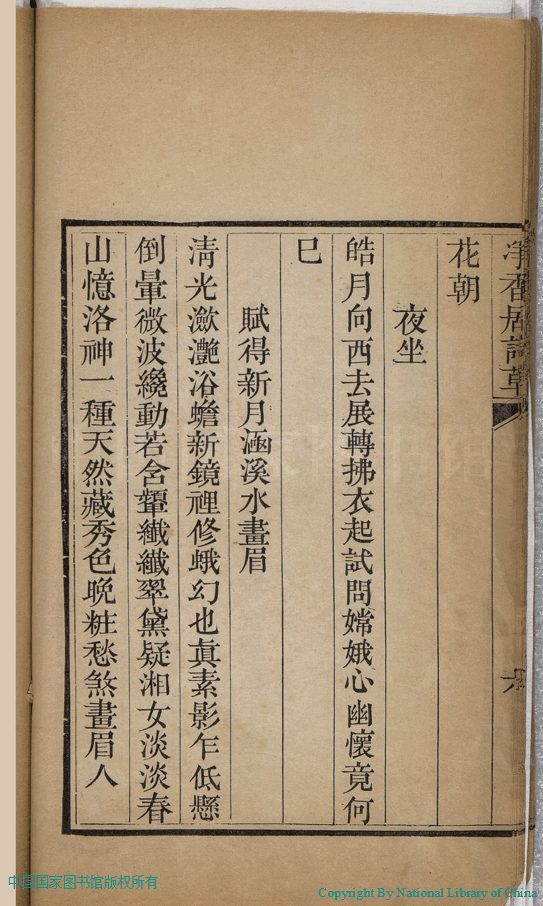 淨香居詩草
六
花朝
夜坐
皓月向西去展轉拂衣起試問嫦娥心幽懷竟何
巳
賦得新月涵溪水畫眉
淸光瀲灧浴蟾新鏡裡修蛾幻也真素影乍低懸
倒暈微波纔動若含顰纖纖翠黛疑湘女淡淡春
山憶洛神一種天然藏秀色晩粧愁煞畫眉人
中国国家图书馆版权所有
Copyright By National Library of China